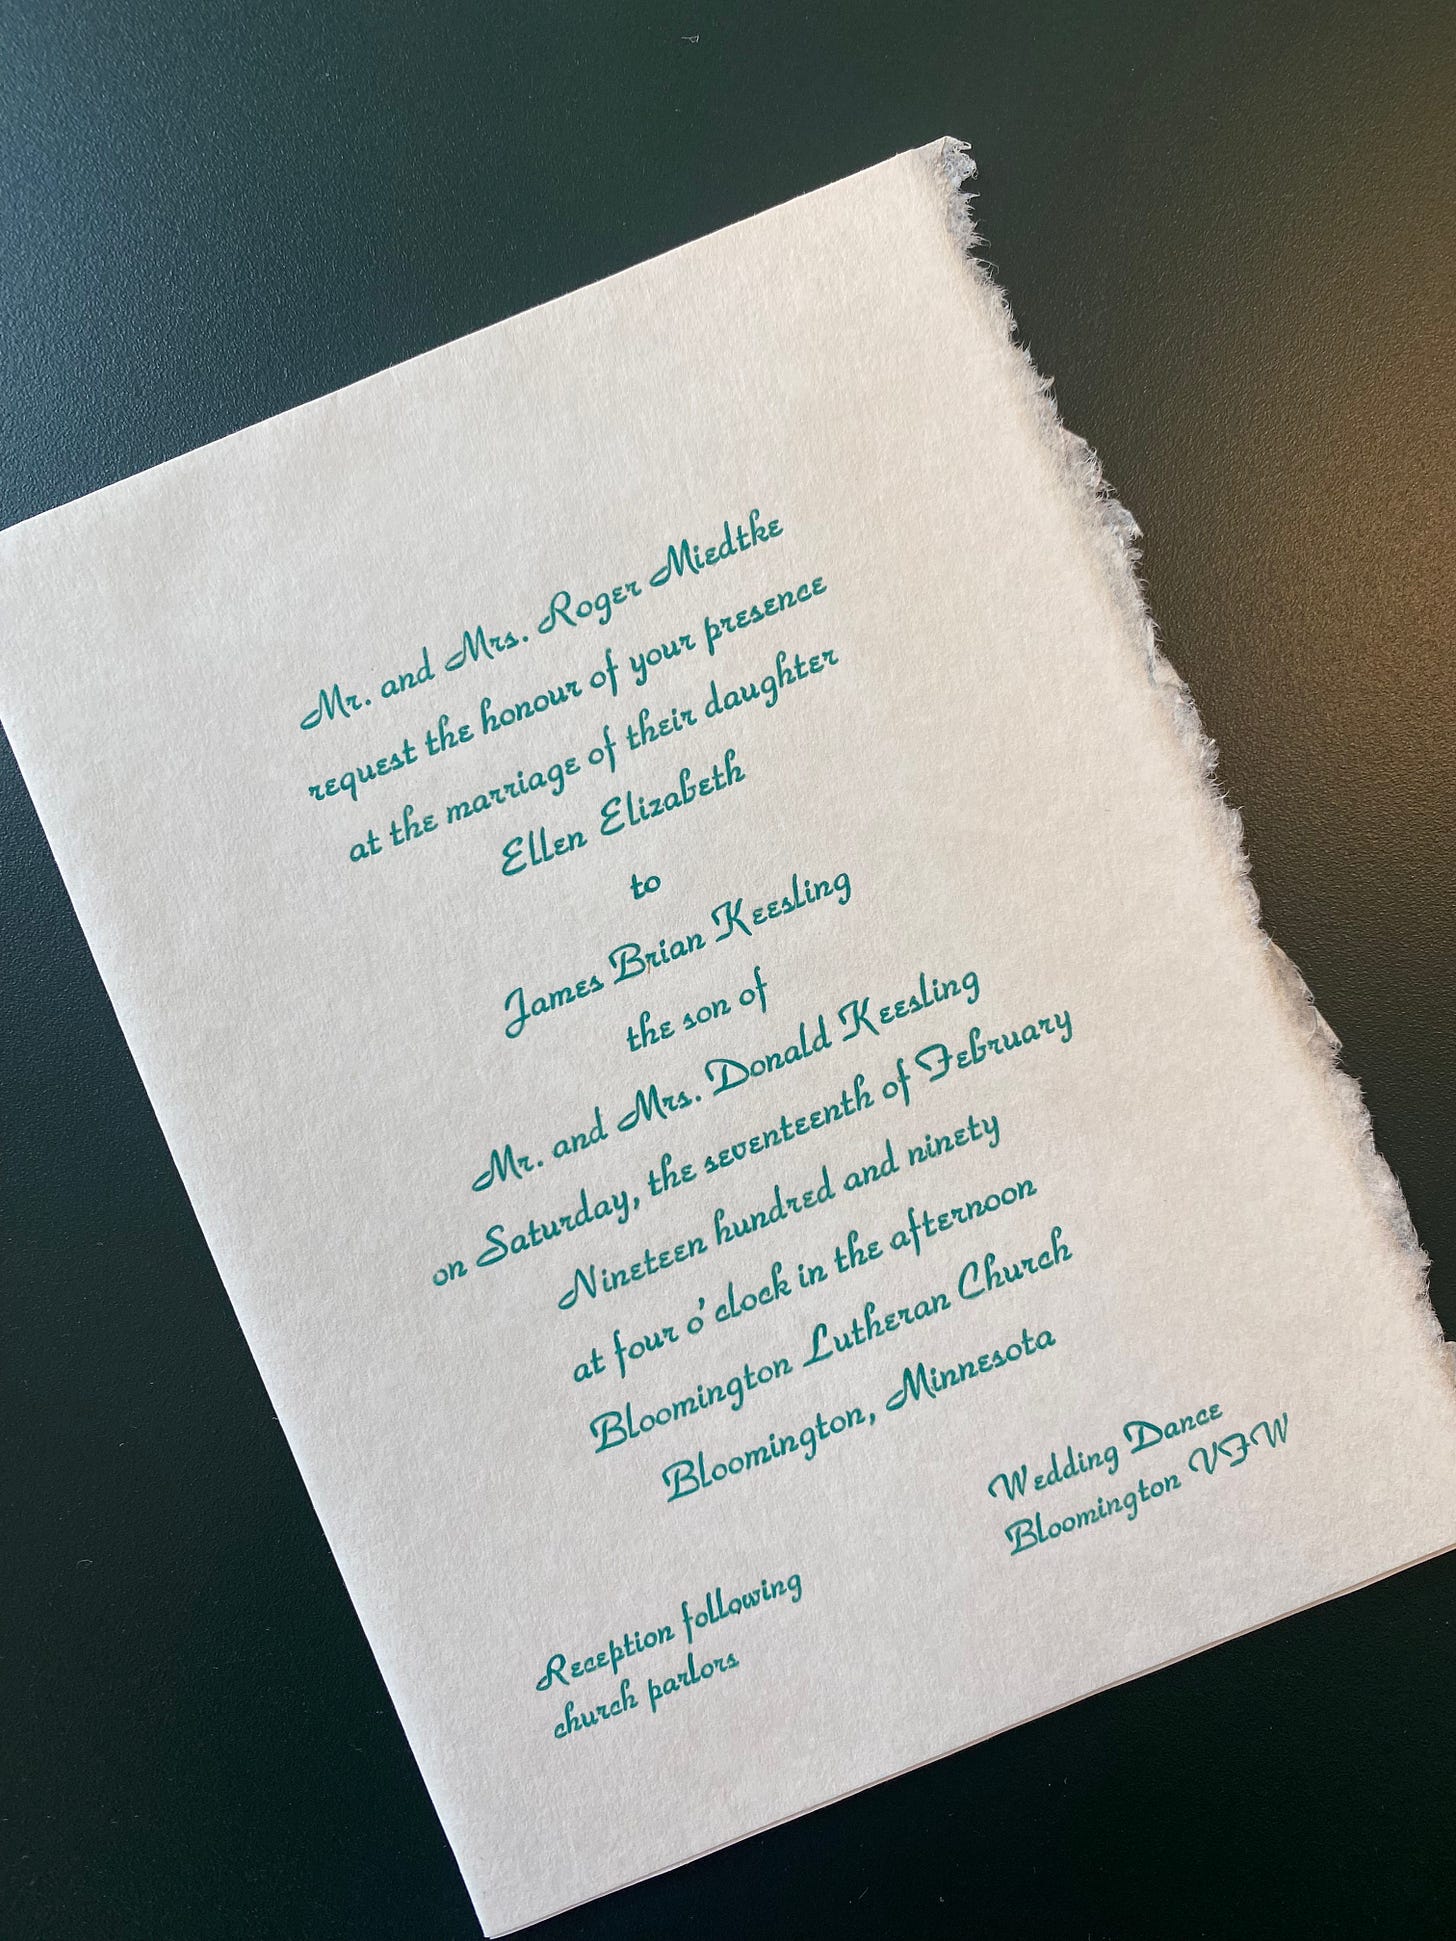 Mr. and Mrs. Roger Miedtke
request the honour of your presence
at the marriage of their daughter
Ellen Elizabeth
to
James Brian Keesling
the son of
Mr. and Mrs. Donald Keesling
on Saturday, the seventeenth of February
Nineteen hundred and ninety
at four o'clock in the afternoon
Bloomington Lutheran Church
Bloomington, Minnesota
Reception following
church parlors
Wedding Dance
Bloomington VFW